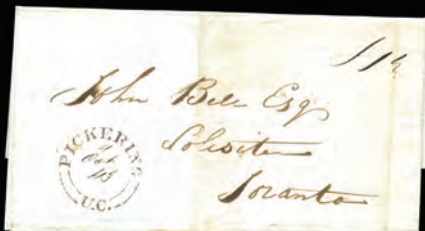 John Bell Esq
Solicitor
Toronto
PICKERING
Oct
U.C.